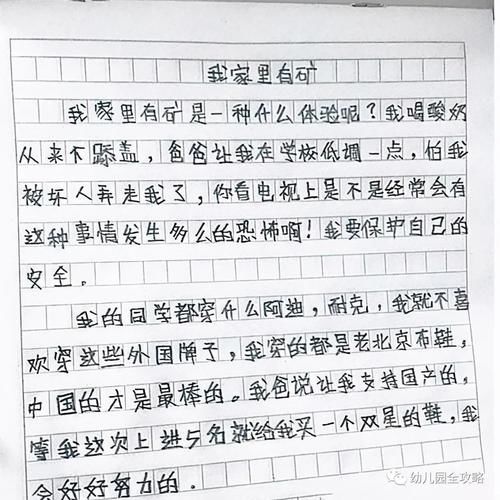 我家里有矿
我家里有矿是一种什么体验呢？我喝酸奶
从来不舔盖，爸爸让我在学校低调一点，怕我
被坏人弄走我了，你看电视上是不是经常会有
这种事情发生多么的恐怖啊！我要保护自己的
安全。
我的同学都穿什么阿迪，耐克，我就不喜
欢穿这些外国牌子，我穿的都是老北京布鞋，
中国的才是最棒的。我爸说让我支持国产的，
等我这次上进5名就给我买一个双星的鞋，我
会好好努力的．
幼儿园全攻略